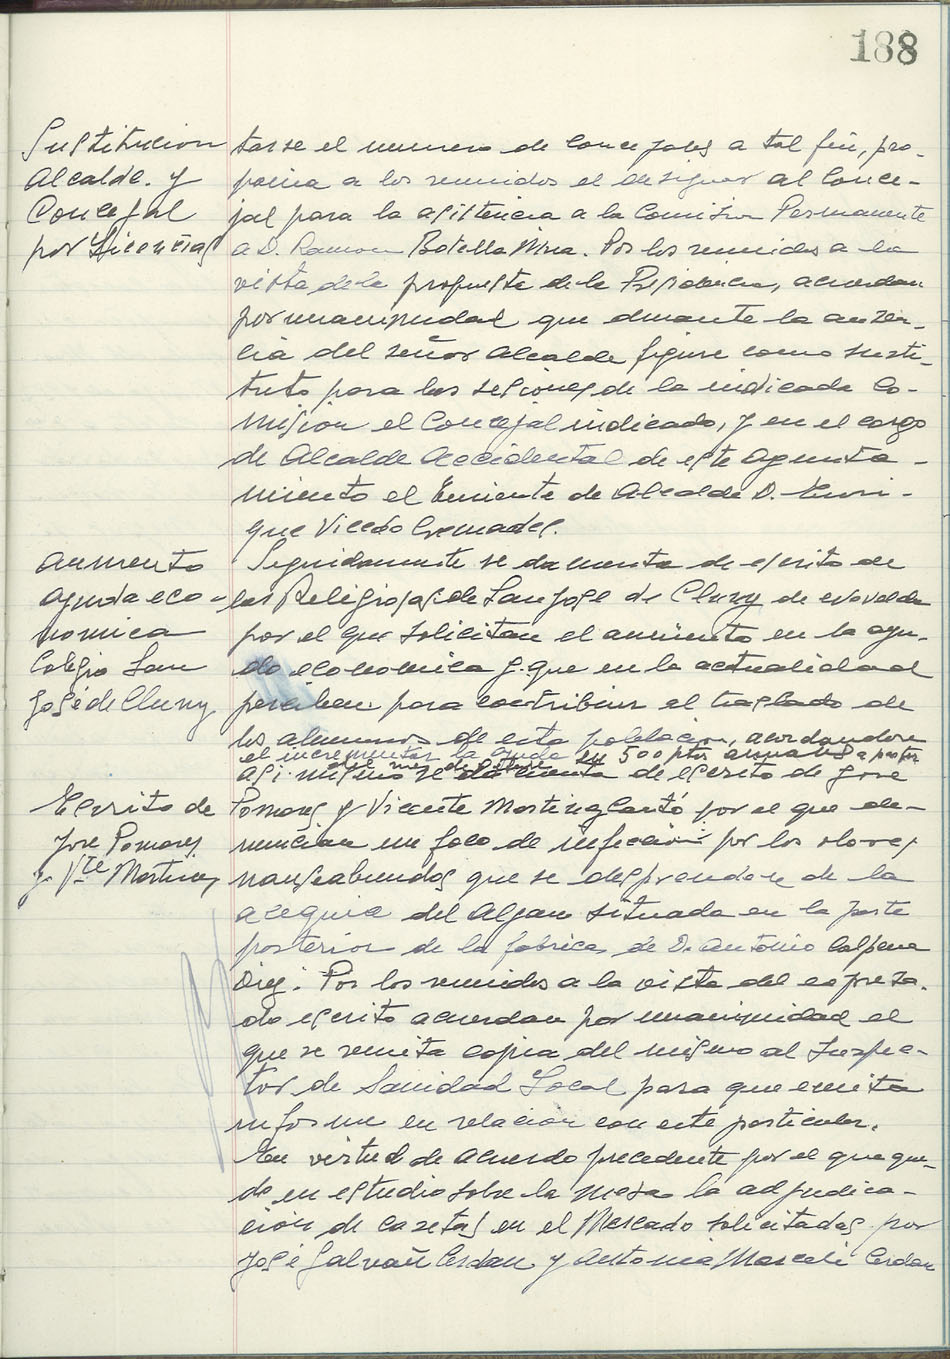 188
Sustitucion
Alcalde. y
Concejal
por Licencias
tarse el numero de Concejales a tal fin, pro-
ponia a los reunidos el designar al Conce-
jal para la asistencia a la Comision Permanente
a D. Ramon Botella Mira. Por los reunidos a la
vista de la propuesta de la Presidencia, acuerdan
por unanimidad que durante la ausen-
cia del señor Alcalde figure como susti-
tuto para las sesiones de la indicada Co-
mision el Concejal indicado, y en el cargo
de Alcalde Accidental de este Ayunta-
miento el Teniente de Alcalde D. Enri-
que Vicedo Cremades.
Aumento
ayuda eco-
nomica
Colegio San
José de Cluny
Seguidamente se da cuenta de escrito de
las Religiosas de San Jose de Cluny de Novelda
por el que solicitan el aumento en la ayu-
da economica q. que en la actualidad
perciben para contribuir al traslado de
los alumnos de esta poblacion, acordandose
el incrementar la ayuda en 500 ptas anuales a partir
Asi mismo se da cuenta de escrito de Jose
Escrito de
Jose Pomares
y Vte Martinez
Pomares y Vicente Martinez Cantó por el que de-
nuncian un foco de infección por los olores
nauseabundos que se desprenden de la
acequia del Aljan situada en la parte
posterior de la fabrica de D. Antonio Calpena
Diez. Por los reunidos a la vista del expresa-
do escrito acuerdan por unanimidad el
que se remita copia del mismo al Inspec-
tor de Sanidad Local para que emita
informe en relacion con este particular.
En virtud de acuerdo precedente por el que que-
da en estudio sobre la mesa la adjudica-
ción de casetas en el Mercado solicitadas por
José Galvañ Cerdan y Antonia Cerdan